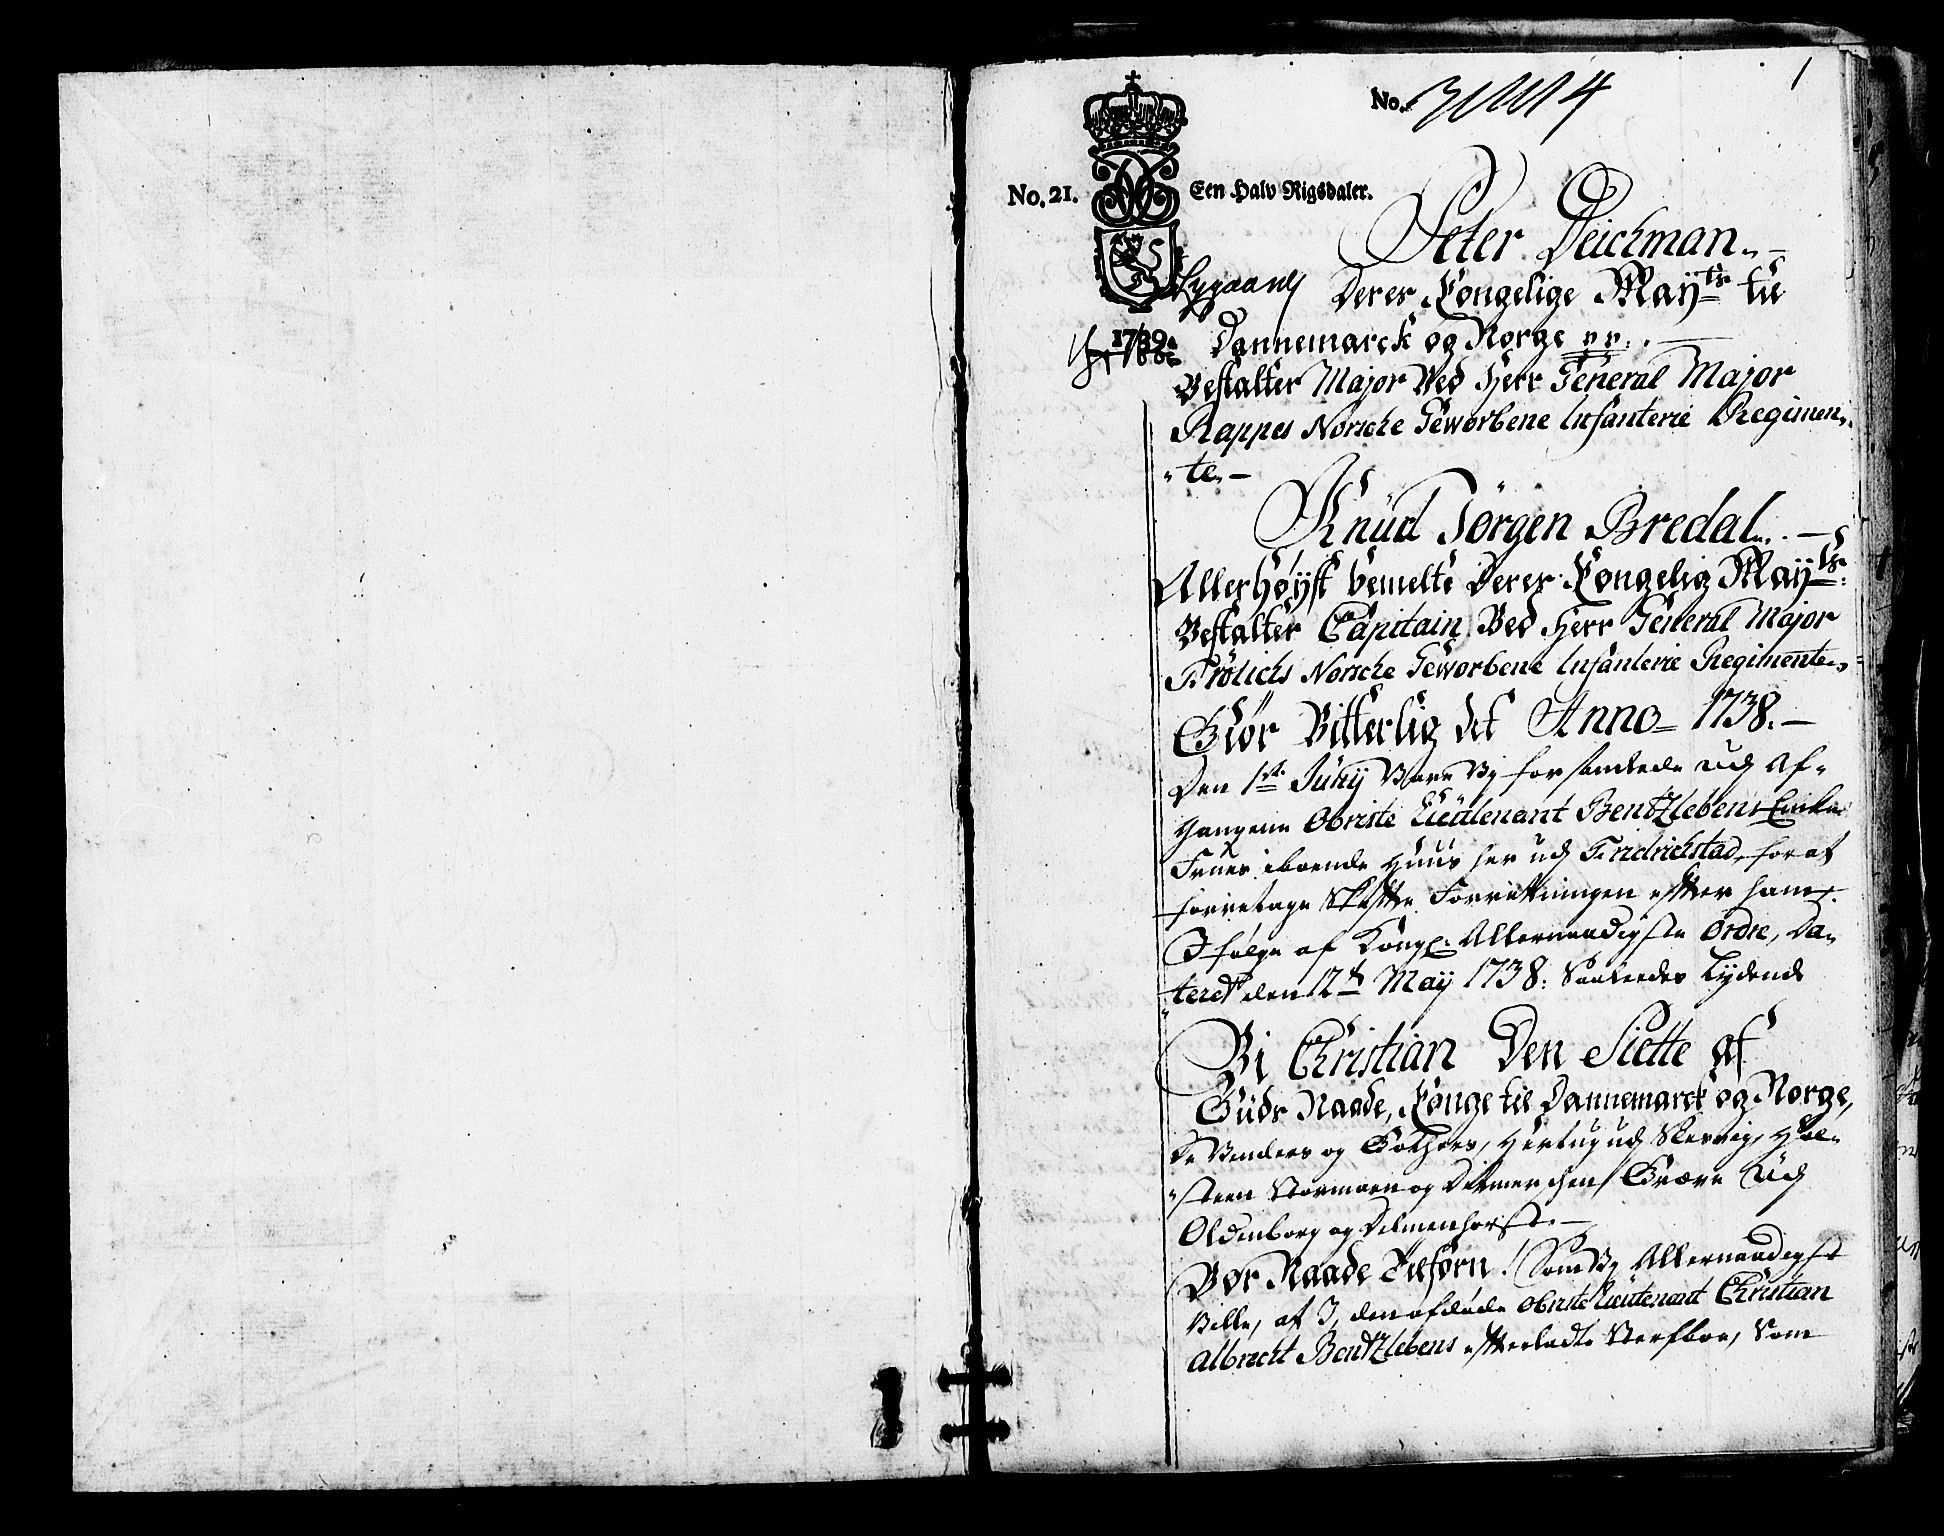 1
No.
No. 21. Een Halv Rigsdaler.
Peter Deichman.
Deres Kongelige Mayts til
1739.
Dannemarck og Norge pp:
Bestalter Major Ved Herr General Major
Rappes Norsche Geworbene Infanterie Regimen-
-te-
Knud Jörgen Bredal.
Allerhöyst bemelte Deres Kongelig Mayts:
Bestalter Capitain Ved Herr General Major
Frölichs Norsche Geworbene Infanterie Regimente,
Giör Vitterlig det Anno 1738.
Den Juny Vare Vj forsamlede udj Af-
gangene Obriste Lieutenant Bentzlebens Encke
Frues iboende Huus her udj Fridrichstad, for at
forretage Skifte Forretningen efter ham.
I följe af Kongl: Allernaadigste Ordre, Da-
teret den 12te May 1738: Saaledes Lydende
Vi Christian Den Siette af
Guds Naade, Konge til Dannemarck og Norge,
De Venders og Gothers, Hertug udj Slesvig, Hol-
-steen Stormarn og Ditmerschen, Greve Udj
Oldenborg og Delmenhorst.
Vor Naade Tilforn! Som Vj Allernaadigst
Ville, at I, den afdöde Obriste Lieutenant Christian
Albrecht Bentzlebens efterladte Sterfboe, Som